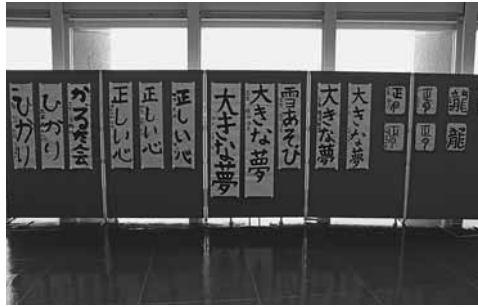 ひかり
ひかり
かるた会
正しい心
正しい心
正しい心
大きな夢
大きな夢
雪あそび
大きな夢
大きな夢
龍
龍